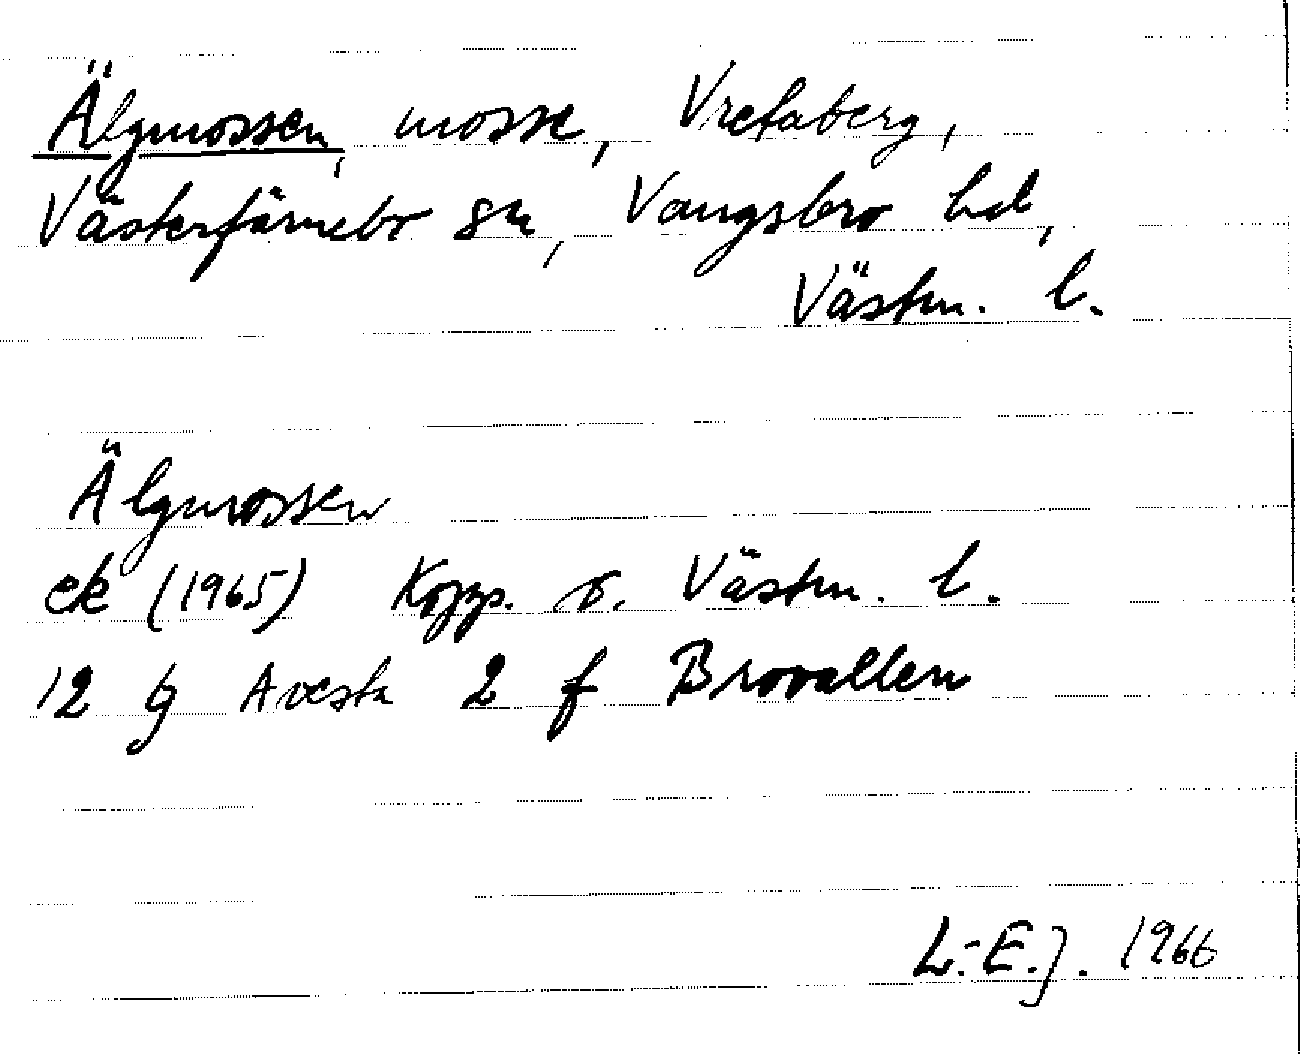 Älgmossen, mosse, Vretaberg,
Västerfärnebo sn, Vangsbro hd,
Västm. l.
Älgmossen
ek (1965) Kopp. o. Västm. l.
12 G Avesta 2 f Brovallen
L.-E. J. 1966